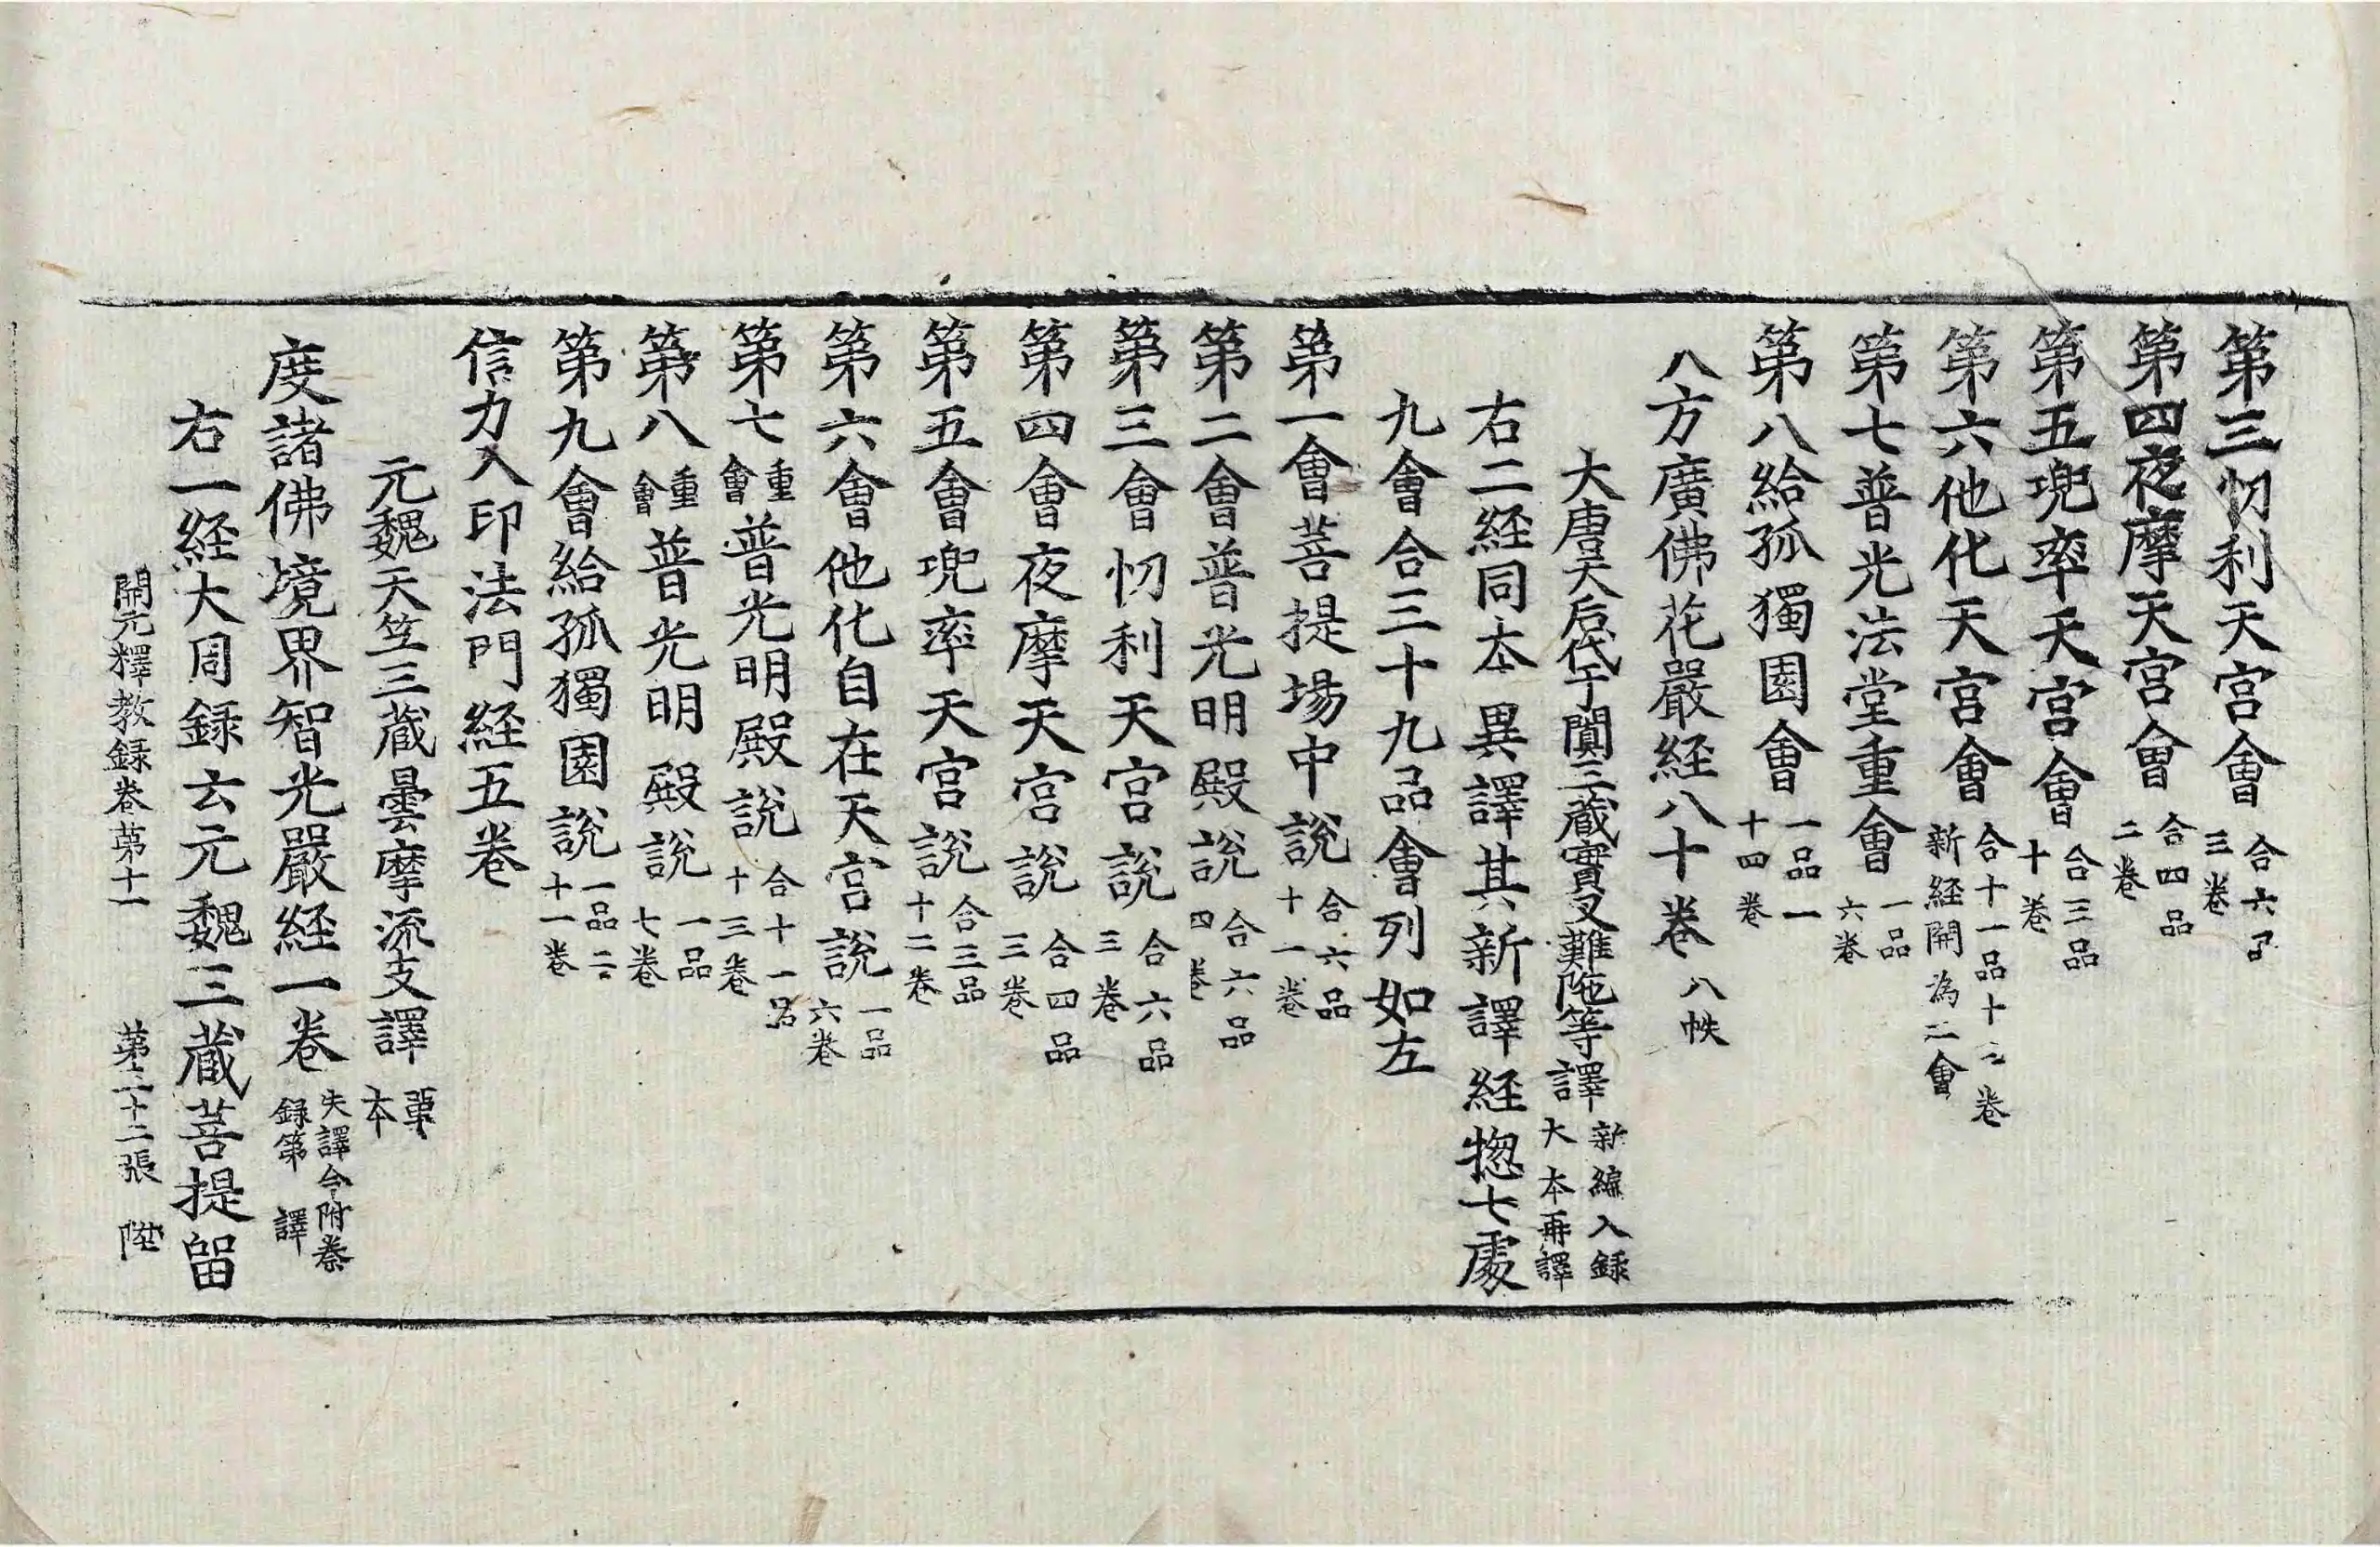 第三忉利天宮會 合六品 三卷
第四夜摩天宮會 合四品 二卷
第五兜率天宮會 合三品 十卷
第六他化天宮會 合十一品十二卷 新経開為二會
第七普光法堂重會 一品 六卷
第八給孤獨園會 一品一 十四卷
八方廣佛花嚴経八十卷 八帙
大唐天后代于闐三蔵實叉難陁等譯 新編入録 大本再譯
右二経同本異譯其新譯経揔七處
九會合三十九品會列如左
第一會菩提場中說 合六品 十一卷
第二會普光明殿說 合六品 四卷
第三會忉利天宮說 合六品 三卷
第四會夜摩天宮說 合四品 三卷
第五會兜率天宮說 合三品 十二卷
第六會他化自在天宮說 一品 六卷
第七重會普光明殿說 合十一品 十三卷
第八重會普光明殿說 一品 七卷
第九會給孤獨園說 一品二 十一卷
信力入印法門経五卷
元魏天竺三蔵曇摩流支譯 單本
度諸佛境界智光嚴経一卷 失譯今附秦録第 譯
右一経大周録云元魏三蔵菩提留
開元釋教録卷第十一 第二十二張 陞